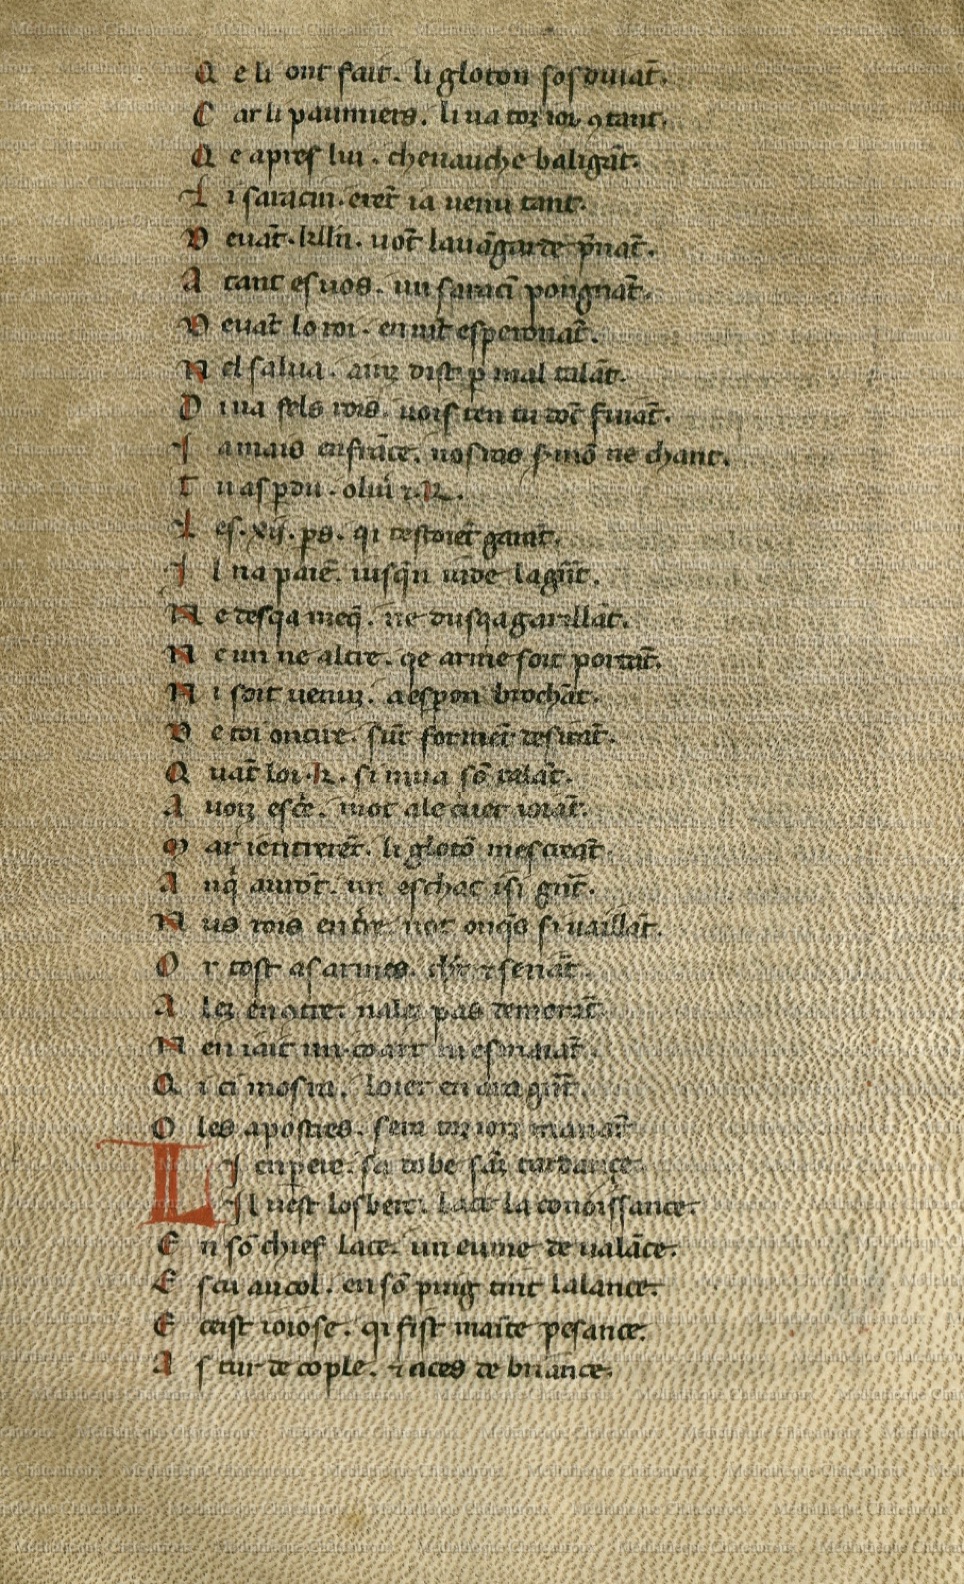 Q e li ont fait. li gloton sosduiat̄.
C ar li paumiers. li ua toz iorz ꝯtant.
Q e apres lui. cheuauche baligāt.
L i saracin. eret̄ ia uenu tant.
D euāt. kllīn. uot̄ lauāgarde p̄nāt.
A tant es uos. un saracī poignāt.
D euāt lo roi. en uīt esperonāt.
N el salua. ainz dist p mal talāt.
D i ua fels rois. uois ten tu toc̄ fuiāt.
I amais en frāce. nosteos ſmō ne chant.
T u as pdu. oliuī ⁊. R.
L es .xii. ps. qi testoiēt garāt.
I l na paiē. iusqēn īnde lagn̄t.
N e desqa meq̄. ne dusqagarillāt.
N e un ne altre. qe arme soit portāt.
N i soit uenuz. a espon brochāt.
D e toi oncire. sūt formet̄ desirāt.
Q uāt loi .k. si mua sō talāt.
A uoiz escē. mot ale cuer ioiāt.
M ar ientrerēt. li glotō mescreāt.
A nq̄ auiōt. un eschac isi gn̄t.
N us rois en tr̄e. not onqs si uaillāt.
O r tost as armes. chr̄ ⁊ seriāt.
A lez en ꝯtre. nalez pas demorāt.
N en iait un coart ni esmaiāt.
Q i ci mosira. loier en aura gn̄t.
O les apostres. sera toz iorz manāt.
L I enpere. sa robe faz tardance.
I l uest losberc. lace la conoissance.
E n sō chief lace. un eume de ualāce.
E scu au col. en sō puig tint la lance.
E ceist ioiose. qi fist mainte pesance.
A s tur de cople. ⁊ a ces de briance.